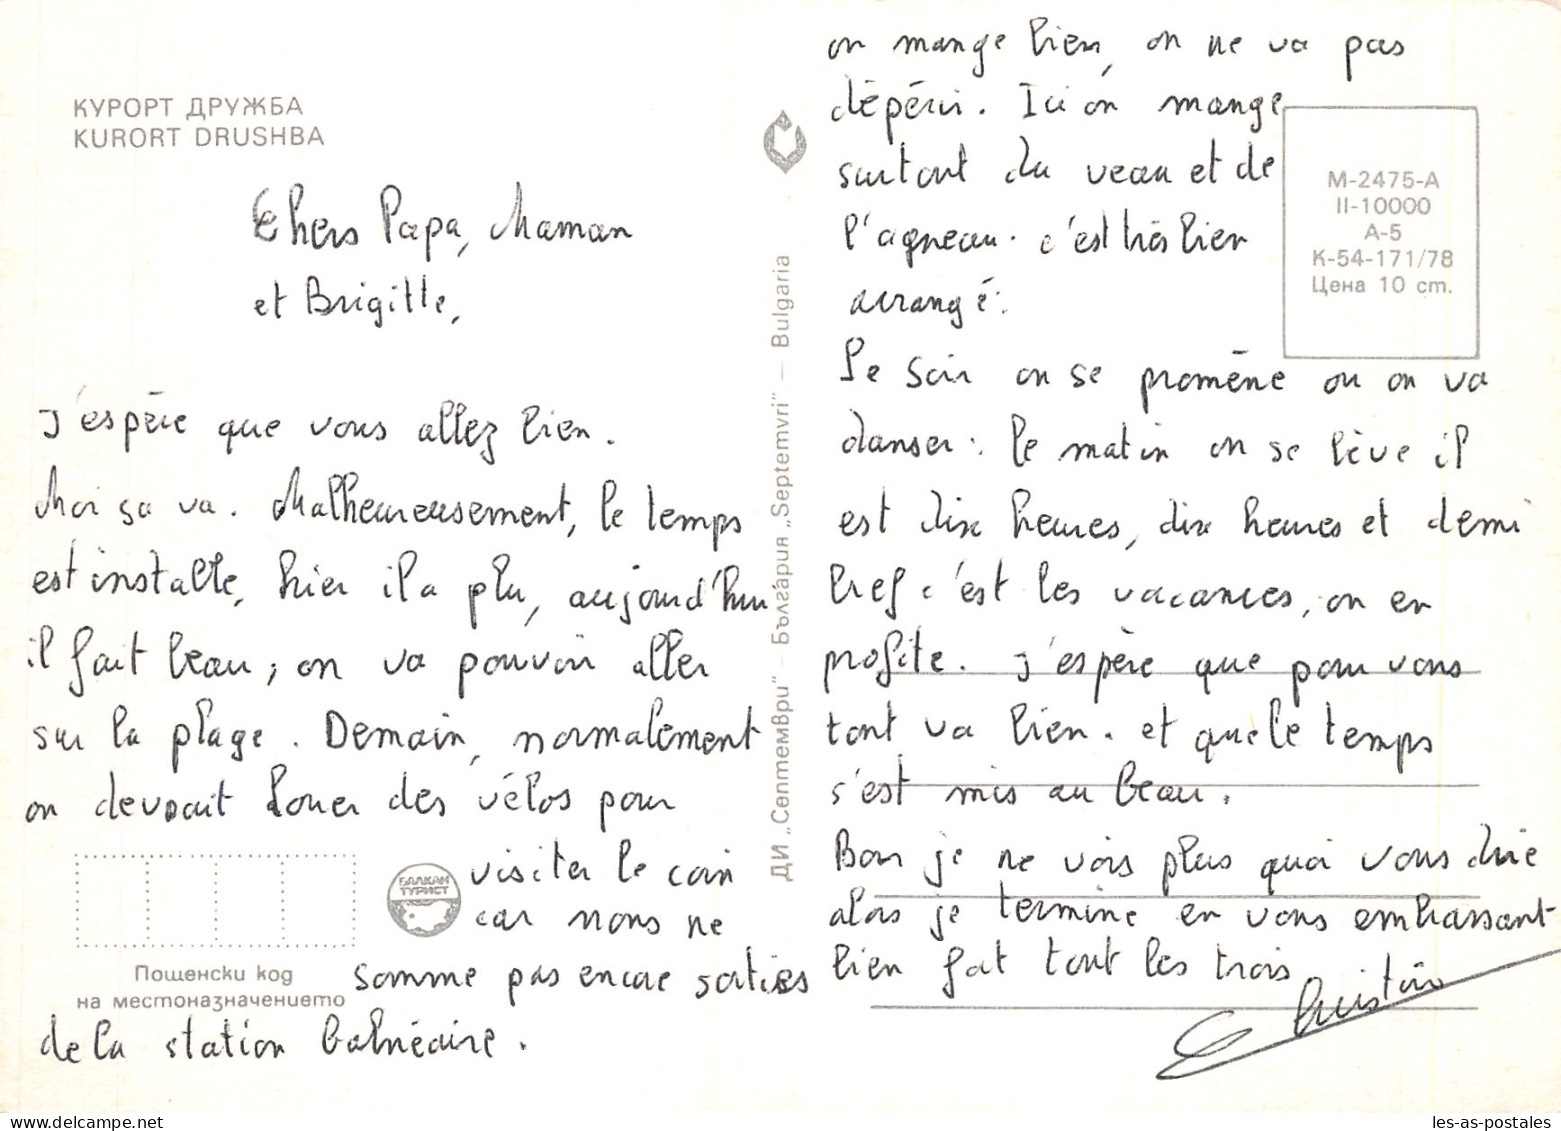 КУРОРТ ДРУЖБА
KURORT DRUSHBA
Chers Papa, Maman
et Brigitte,
J'espère que vous allez bien.
Moi ça va. Malheureusement, le temps
est instable, hier il a plu, aujourd'hui
il fait beau ; on va pouvoir aller
sur la plage. Demain, normalement
on devrait louer des vélos pour
visiter le coin
car nous ne
somme pas encore sorties
de la station balnéaire.
БАЛКАН
ТУРИСТ
Пощенски код
на местоназначението
ДИ „Септември" — България „Septemvri" — Bulgaria
on mange bien, on ne va pas
dépérir. Ici on mange
surtout du veau et de
l'agneau. c'est très bien
arrangé.
Le soir on se promène ou on va
danser. le matin on se lève il
est dix heures, dix heures et demi
bref c'est les vacances, on en
profite. J'espère que pour vous
tout va bien. et que le temps
s'est mis au beau.
Bon je ne vois plus quoi vous dire
alors je termine en vous embrassant
bien fort tout les trois
Christine
М-2475-А
II-10000
А-5
К-54-171/78
Цена 10 ст.
les-as-postales